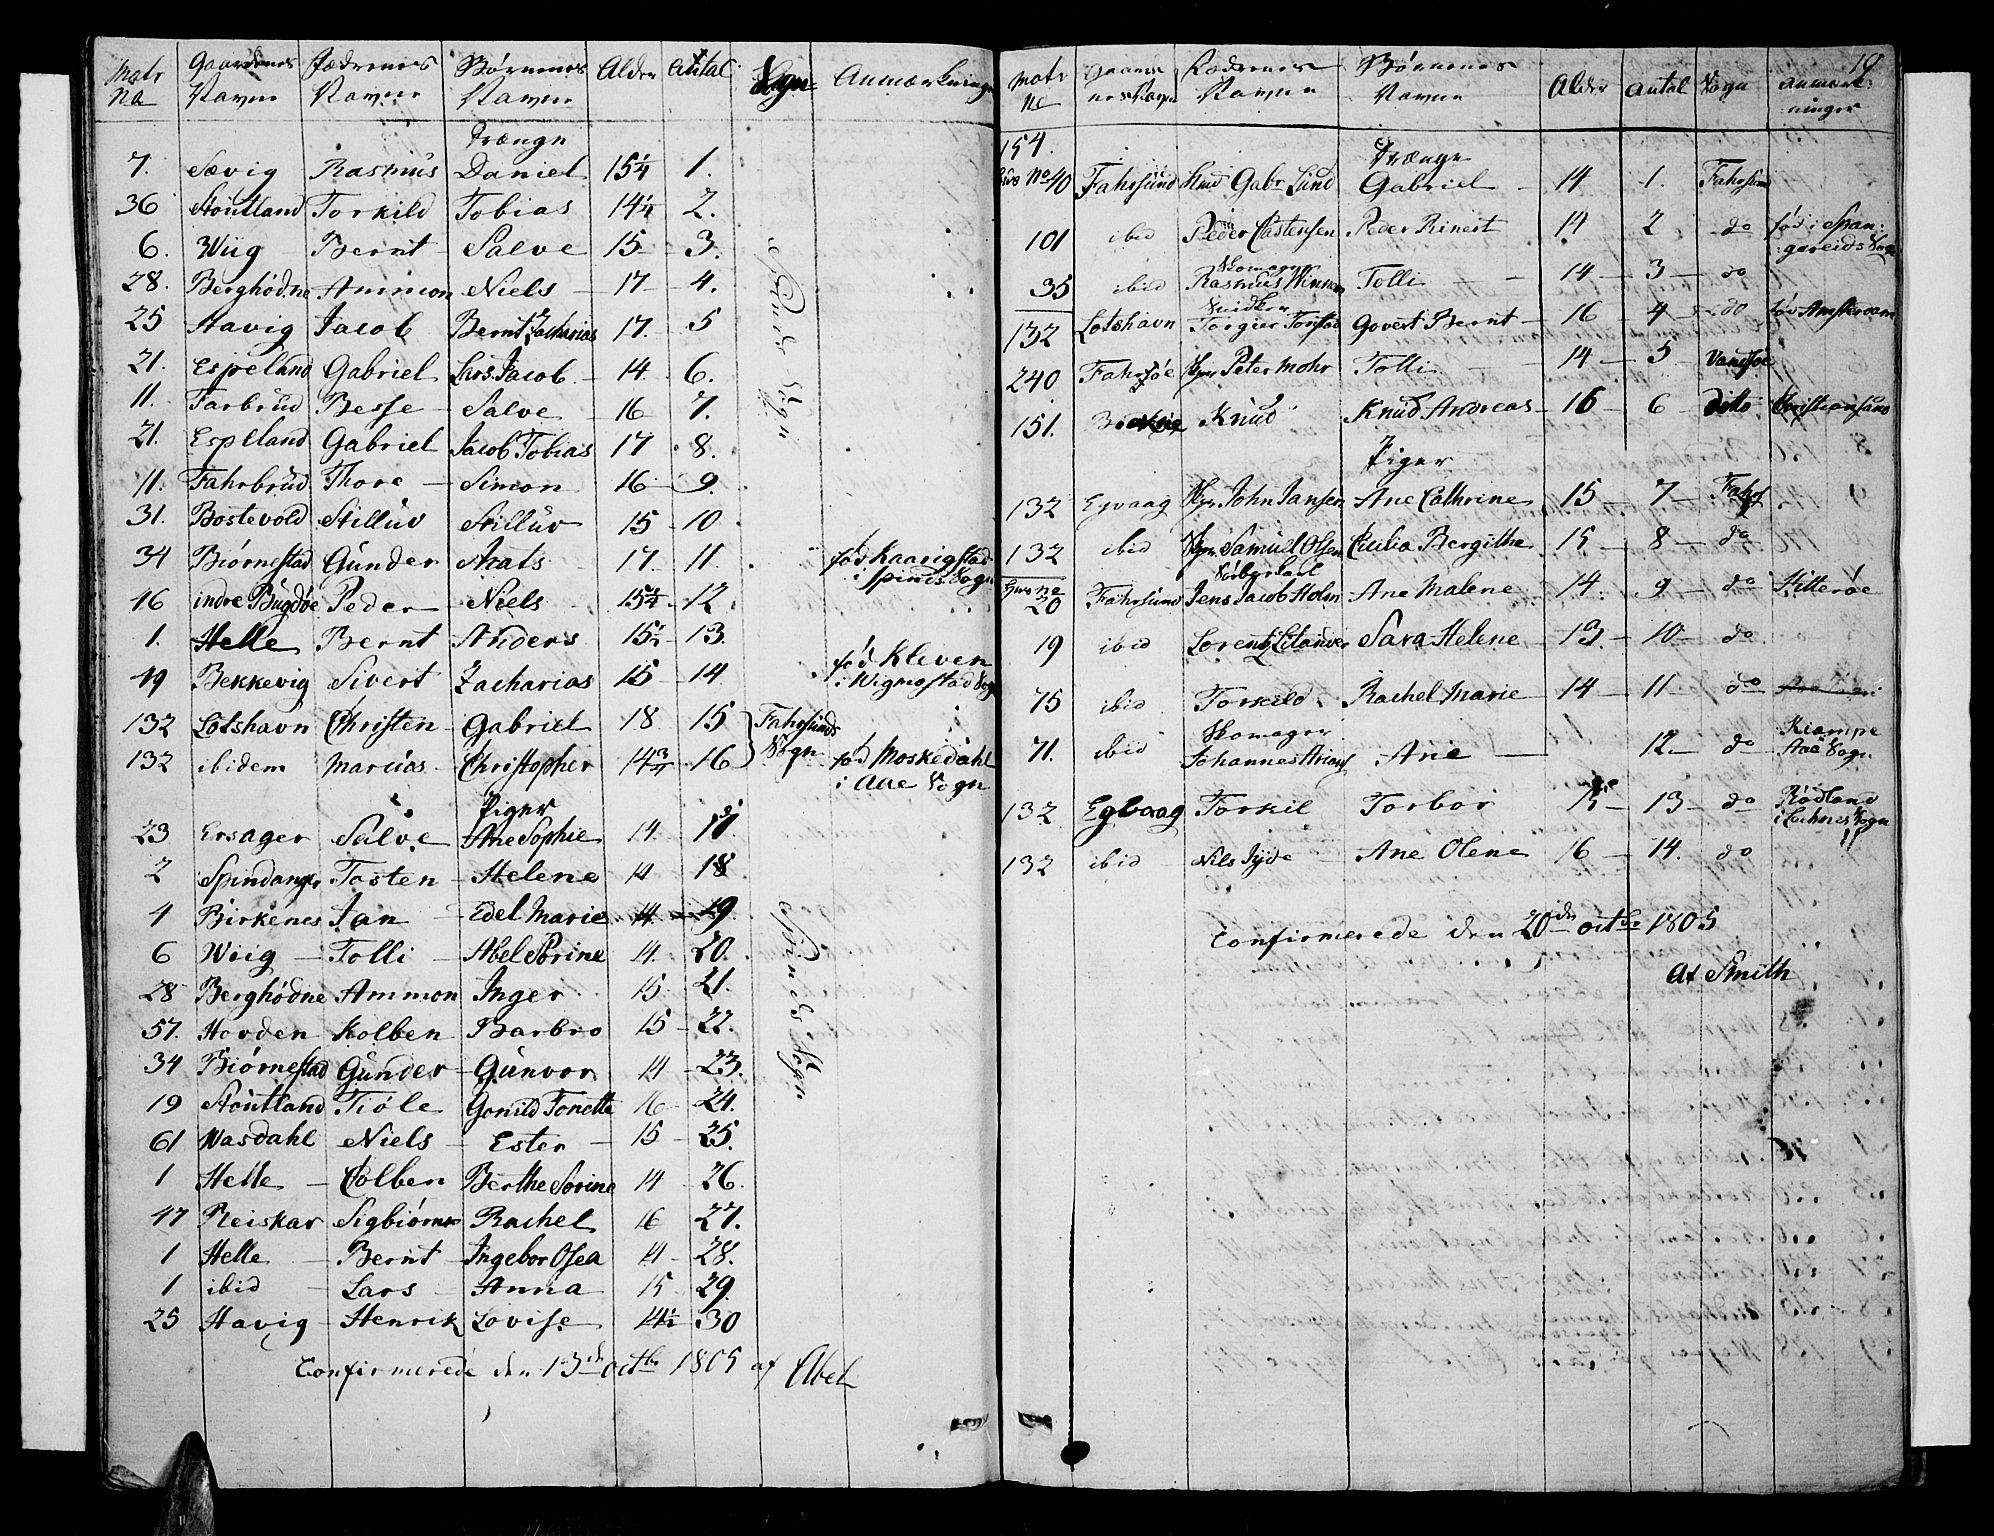 Matr No Gaardenes Navne Fædrenes Navne Børnenes Navne Alder Antal Sogn Anmærkninger
Drænge
7. Sævig Rasmus Daniel 15¼ 1.
36 Stoutland Torkild Tobias 14¼ 2.
6. Wiig Bernt Salve 15 3.
28. Berghødne Ammon Niels 17 4.
25 Havig Jacob Bernt Zacharias 17. 5
21. Espeland Gabriel Lars Jacob 14 6.
11. Farbrud Besse Salve 16 7.
21. Espeland Gabriel Jacob Tobias 17 8.
11. Fahrbrud Thore Simon 16 9.
31. Bostevold Stilluv Stilluv 15 10
34 Biørnestad Gunder Aats 17. 11. fød Kaarigstad i Spinds Sogn
16 indre Bugdøe Peder Niels 15¾ 12
1. Helle Bernt Anders 15½ 13.
49 Bekkevig Sivert Zacharias 15 14 fød Kleven i Wigmostad Sogn
Spinds Sogn
132 Lotshavn Christen Gabriel 18 15 Fahrsunds Sogn
132 ibidem Marcus Christopher 14¾ 16 fød Moskedahl i Aae Sogn
Piger
23 Ersager Salve Ane Sophie 14 17.
2 Spindanger Tosten Helene 14 18
4 Birkenes Jan Edel Marie 14 19.
6 Wiig Tolli Abel Sorine 14. 20.
28 Berghødne Ammon Inger 15 21.
57. Horden Kolben Barbro 15 22.
34 Biørnestad Gunder Gunvor 14 23.
19 Stoutland Tiøle Gonild Tonette 16 24.
61 Wasdahl Niels Ester 15 25.
1 Helle Colben Berthe Sorine 14 26.
47 Reiskar Sigbiørn Rachel 16 27.
1 Helle Bernt Ingebor Osea 14 28.
1 ibid Lars Anna 15 29.
25 Havig Henrik Lovise 14½ 30
Spinds Sogn
Confirmerede den 13de octbr 1805 af Abel
19
Matr No Gaardenes Navne Fædrenes Navne Børnenes Navne Alder Antal Sogn anmærkninger
154.
Drænge
Huus No 40 Fahrsund Knud Gabr Lund Gabriel 14 1. Fahrsund
101 ibid Peder Castensen Peder Rinert 14 2 do fød i Spangareids Sogn
35 ibid Skomager Rasmus Tolli 14 3 do
132 Lotshavn Snidker Torgier Torstad Govert Bernt 16 4 do fød Amsterdam
240. Fahrsøe Hr Peter Mohr Tolli 14 5 Vansøe
151. Knud Knud Andreas 16 6 dito Christiansand
Piger
132 Egvaag John Jansen Ane Cathrine 15 7 Fahrs
132 ibid Samuel Olsen Cicilia Bergithe 15 8 do
Huus No 20 Fahrsund Jens Jacob Holm Ane Malene 14. 9 do Hitterøe
19 ibid Lorentz Litander Sara Helene 13 10 do
75 ibid Torkild Rachel Marie 14 11 do
71. ibid Skomager Johannes Ane 12 do Kiempe Aae Sogn
132 Egvaag Torkil Torbor 15 13 do Rødland i Sogn
132 ibid Nils Jyde Ane Olene 16 14. do
Confirmerede den 20den octbr 1805
Af Smith